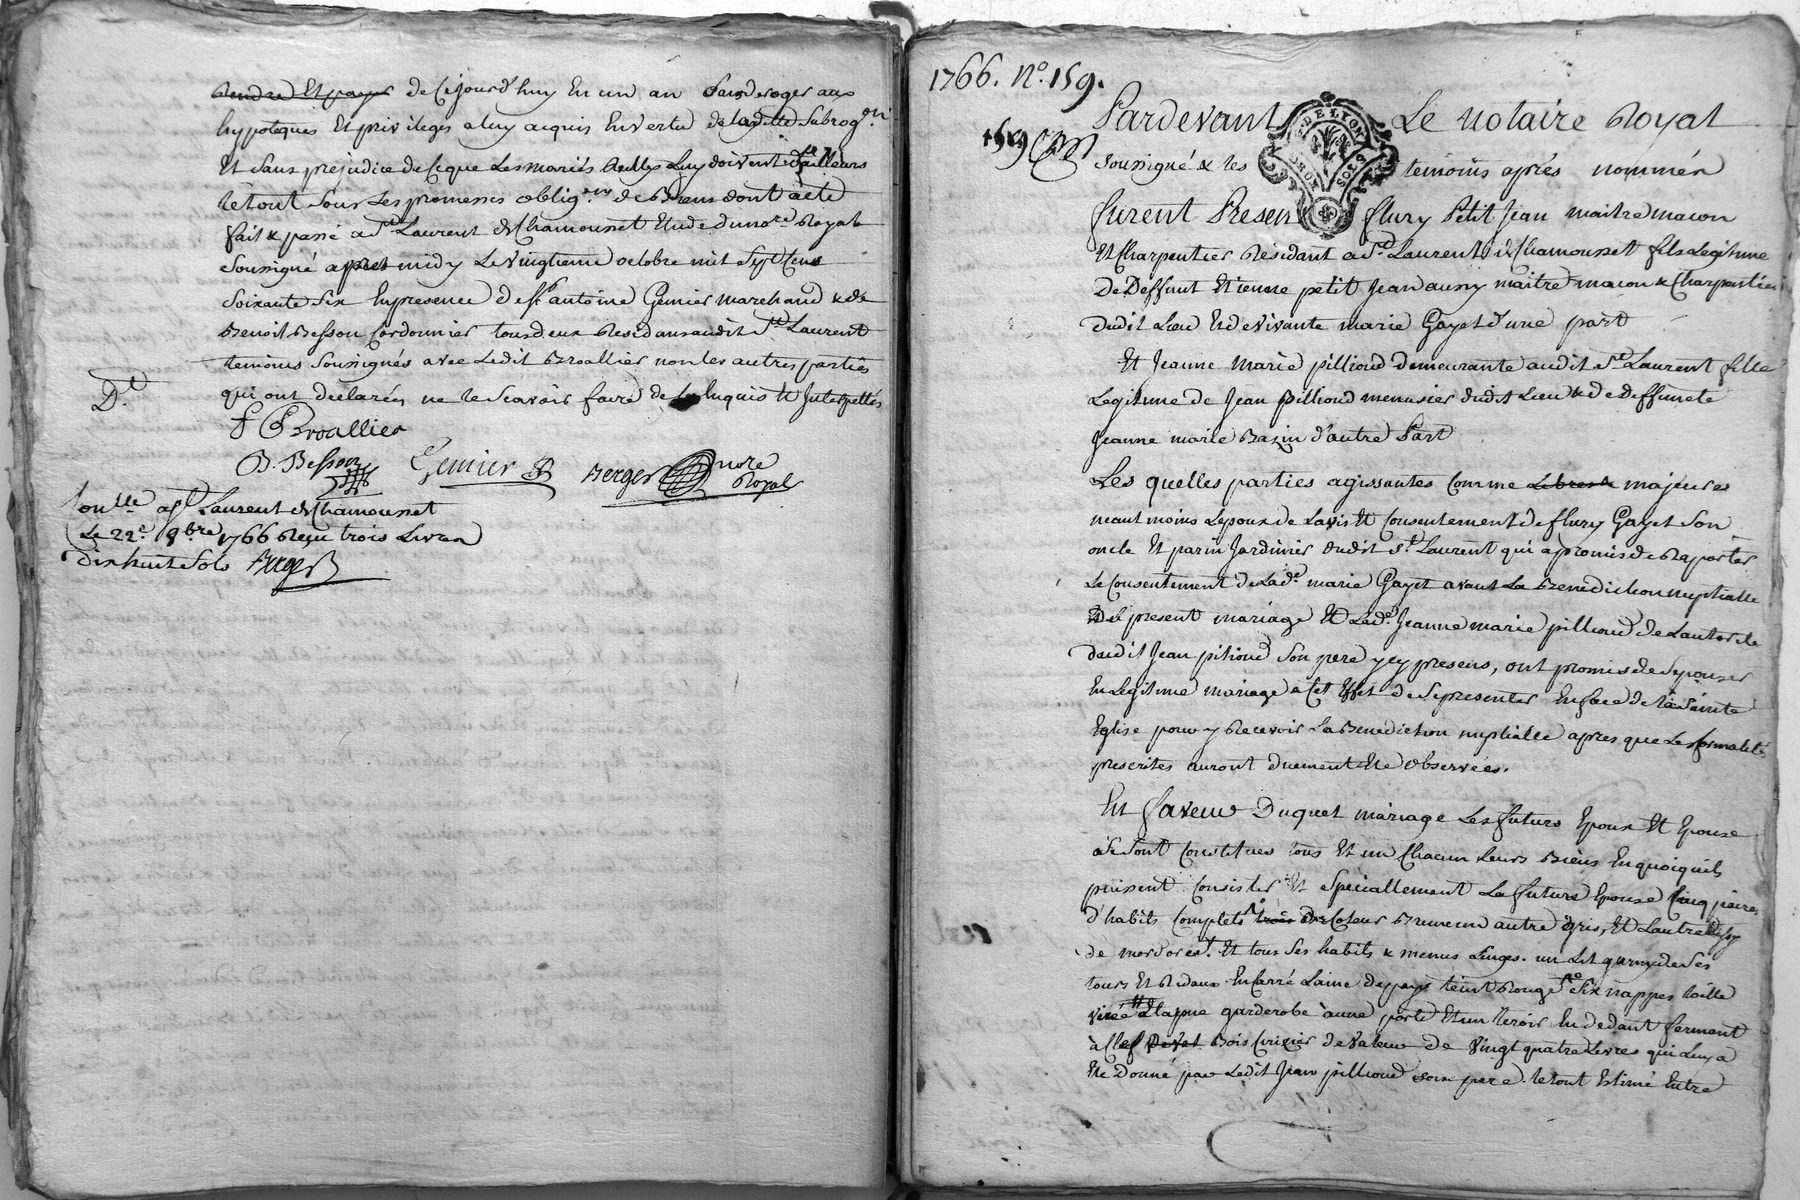 rendre Et payer de Cejourd'huy En un an sans deroger aux
hypoteques Et privileges a luy acquis En vertu de laditte Subrogon
Et Sans prejudice de Ceque Les mariés Luy doivent d'ailleurs
Le tout Sous Les promesses obligons de Biens dont acte
fait & passé a St Laurent de Chamousset Etude du nore Royal
Soussigné apres midy Le vingtieme octobre mil Sept Cens
Soixante Six En presence de Sr antoine Gemier marchand & de
Benoit Besson Cordonnier tous deux Residans audit St Laurent
temoins Soussignés avec Ledit Broallier non les autres parties
qui ont declarées ne le Scavoir faire de Enquis Et Interpellés
Dt
Broallier
B. Besson Gemier Berger nore
Royal
Conlle a St Laurent de Chamousset
Le 22e 8bre 1766 Reçu trois Livres
dix huit Sols Berger
1766. No. 159.
159
Pardevant Le Notaire Royal
soussigné & les temoins après nommés
furent Presens flury Petit Jean maitre macon
Et Charpentier Residant a St Laurent de Chamousset fils Legitime
De Deffunt Etienne petit Jean aussy maitre macon & Charpentier
dudit Lieu Et de vivante marie Gayet d'une part
Et Jeanne Marie pillioud demeurante audit St Laurent fille
Legitime de Jean pillioud menusier dudit Lieu & de Deffuncte
Jeanne marie Bazin d'autre Part
Les quelles parties agissantes Comme Libres & majeures
neantmoins Lepoux de Lavis Et Consentement de flury Gayet Son
oncle Et parin Jardinier dudit St Laurent qui a promis de Raporter
Le Consentement de Lade marie Gayet avant La Benediction nuptialle
Du present mariage Et Lade Jeanne marie pillioud de Lautorité
dudit Jean pilioud Son pere yey presens, ont promis de Sepouser
En Legitime mariage a Cet Effet de Sepresenter En face de la Sainte
Eglise pour y Recevoir La Benediction nuptialle apres que Les formalités
prescrites auront duement Eté observées.
En faveur Duquel mariage Les futurs Epoux Et Epouse
Se Sont Constitués tous Et un Chacun Leurs Biens En quoiquils
puissent Consister Et Speciallement La future Epouse Cinq paires
d'habits Complets trois de Coleur Brune un autre gris, Et Lautre
de mordoret. Et tous Ses habits & menus Linges. un Lit garny de Ses
tours Et Rideaux En Carré Laine de pays teint Rouge Six nappes toille
une garderobe à une porte Et un tiroir En dedant fermant
à Clef Bois Cerizier de valeur de vingt quatre Livres qui Luy a
Eté Donné par Ledit Jean pillioud son pere. Le tout Estimé Entre